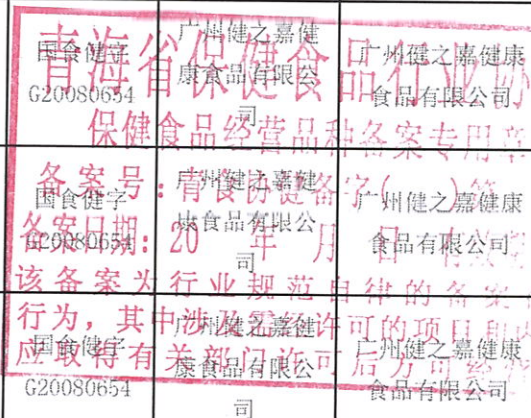 国食健字
G20080654
广州健之嘉健
康食品有限公
司
广州健之嘉健康
食品有限公司
国食健字
G20080654
广州健之嘉健
康食品有限公
司
广州健之嘉健康
食品有限公司
国食健字
G20080654
广州健之嘉健
康食品有限公
司
广州健之嘉健康
食品有限公司
青海省保健食品行业协
保健食品经营品种备案专用章
备案号:青食协健备字( )第
备案日期: 20 年 月 日 有效期
该备案为行业规范自律的备案
行为,其中涉及需经许可的项目
应取得有关部门许可后方可经